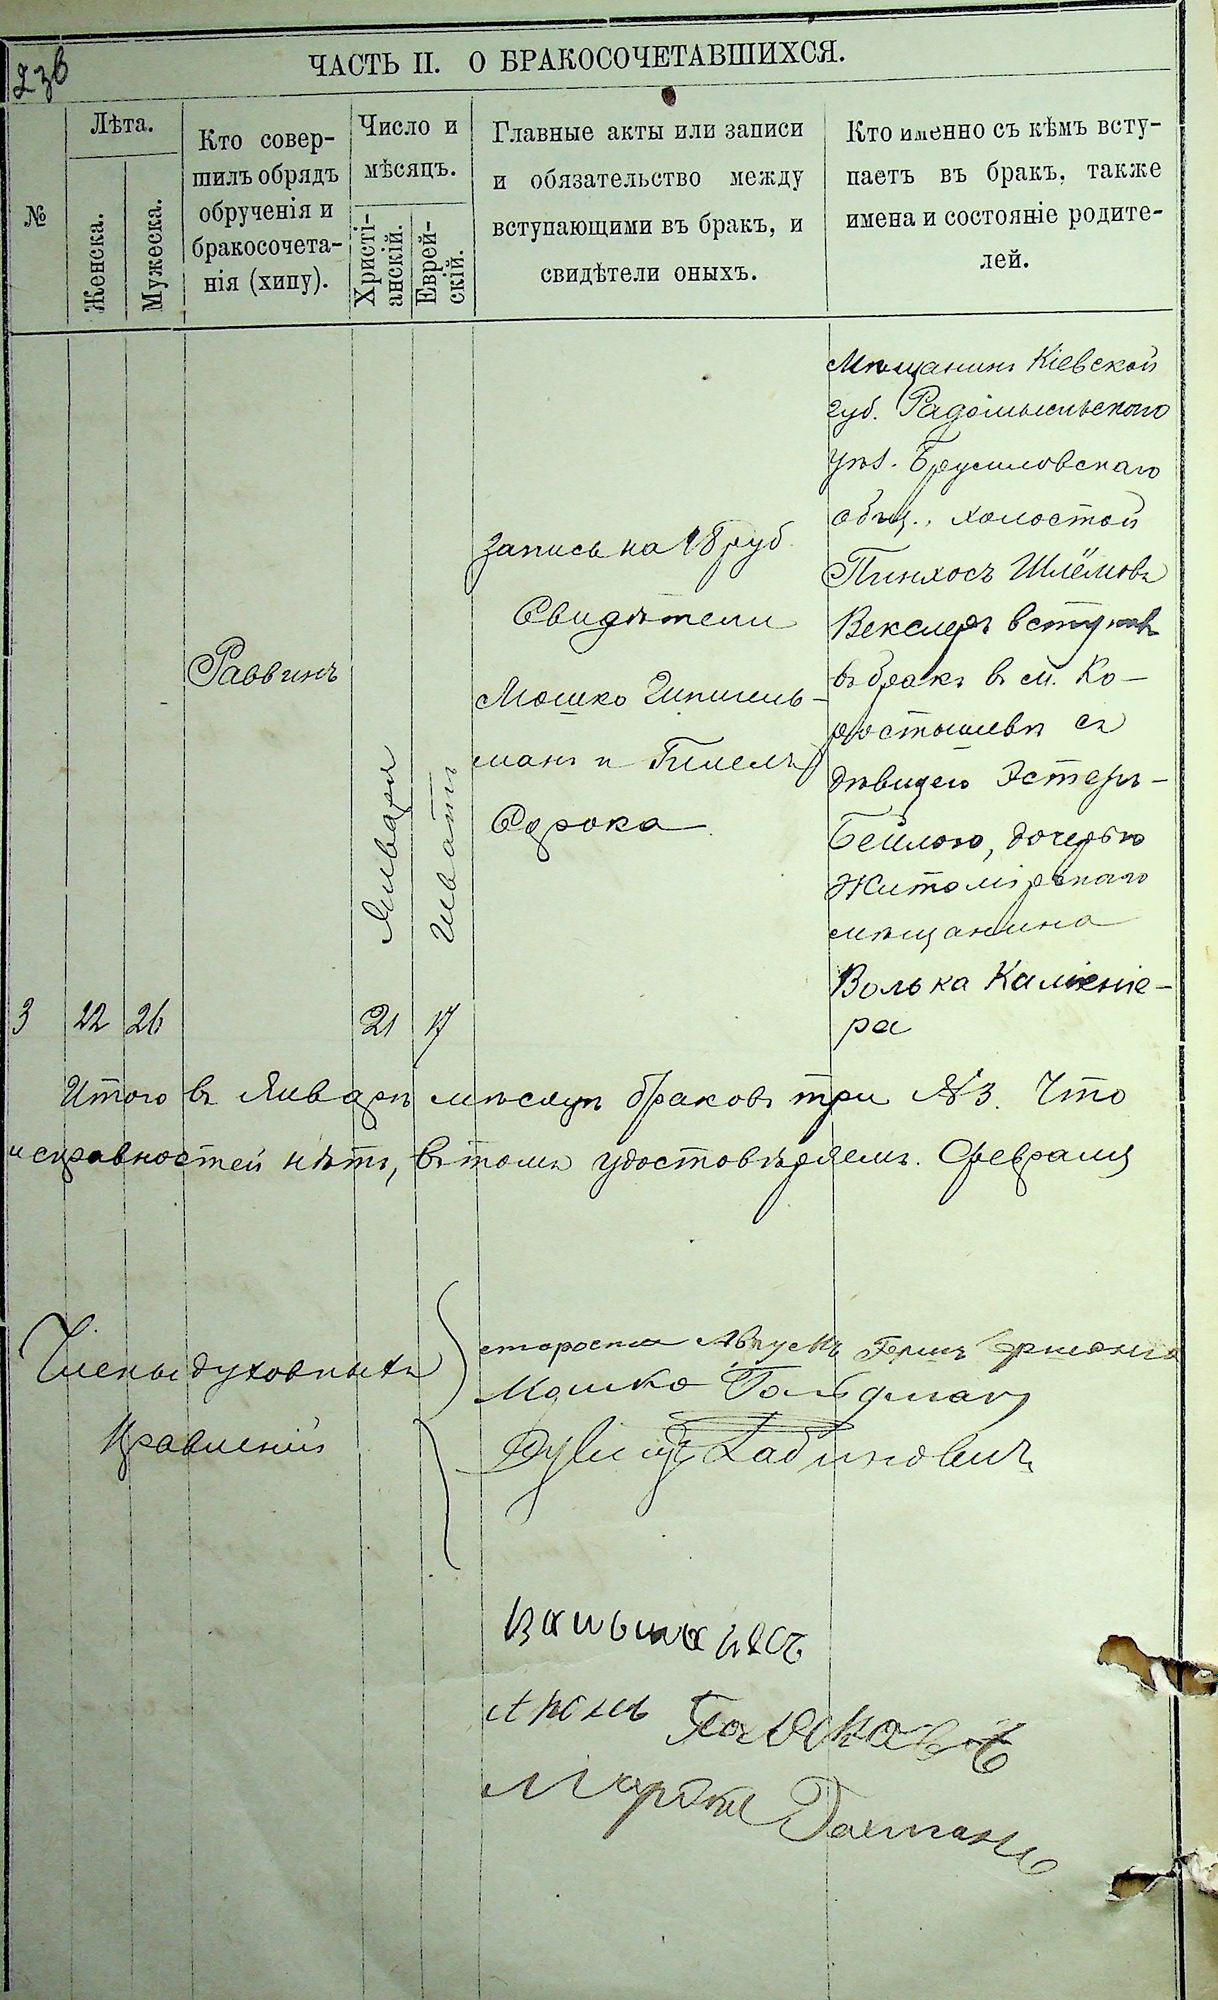 236
ЧАСТЬ II. О БРАКОСОЧЕТАВШИХСЯ.
№
Лѣта.
Женска.
Мужеска.
Кто совер-
шилъ обрядъ
обрученія и
бракосочета-
нія (хипу).
Число и
мѣсяцъ.
Христі-
анскій.
Еврей-
скій.
Главные акты или записи
и обязательство между
вступающими въ бракъ, и
свидѣтели оныхъ.
Кто именно съ кѣмъ всту-
паетъ въ бракъ, также
имена и состояніе родите-
лей.
3
22
26
Раввинъ
Января
21
Шватъ
17
Запись на 18 руб.
Свидѣтели
Мошко
манъ и Гимель
Сорока
Мѣщанинъ Кіевской
губ. Радомысльскаго
уѣз. Брусиловскаго
общ., холостой
Пинхосъ Шлёмовъ
Векслеръ вступилъ
въ бракъ въ м. Ко-
ростышевѣ съ
дѣвицею Эстеръ-
Бейлою, дочерью
Житомірскаго
мѣщанина
Волька
ра
Итого въ Январѣ мѣсяцѣ браковъ три №3. Что
неисправностей нѣтъ, въ томъ удостовѣряемъ. Февраля
Члены духовныхъ
Правленій
староста Герш
Мошко Гольдман
Рабиновичъ